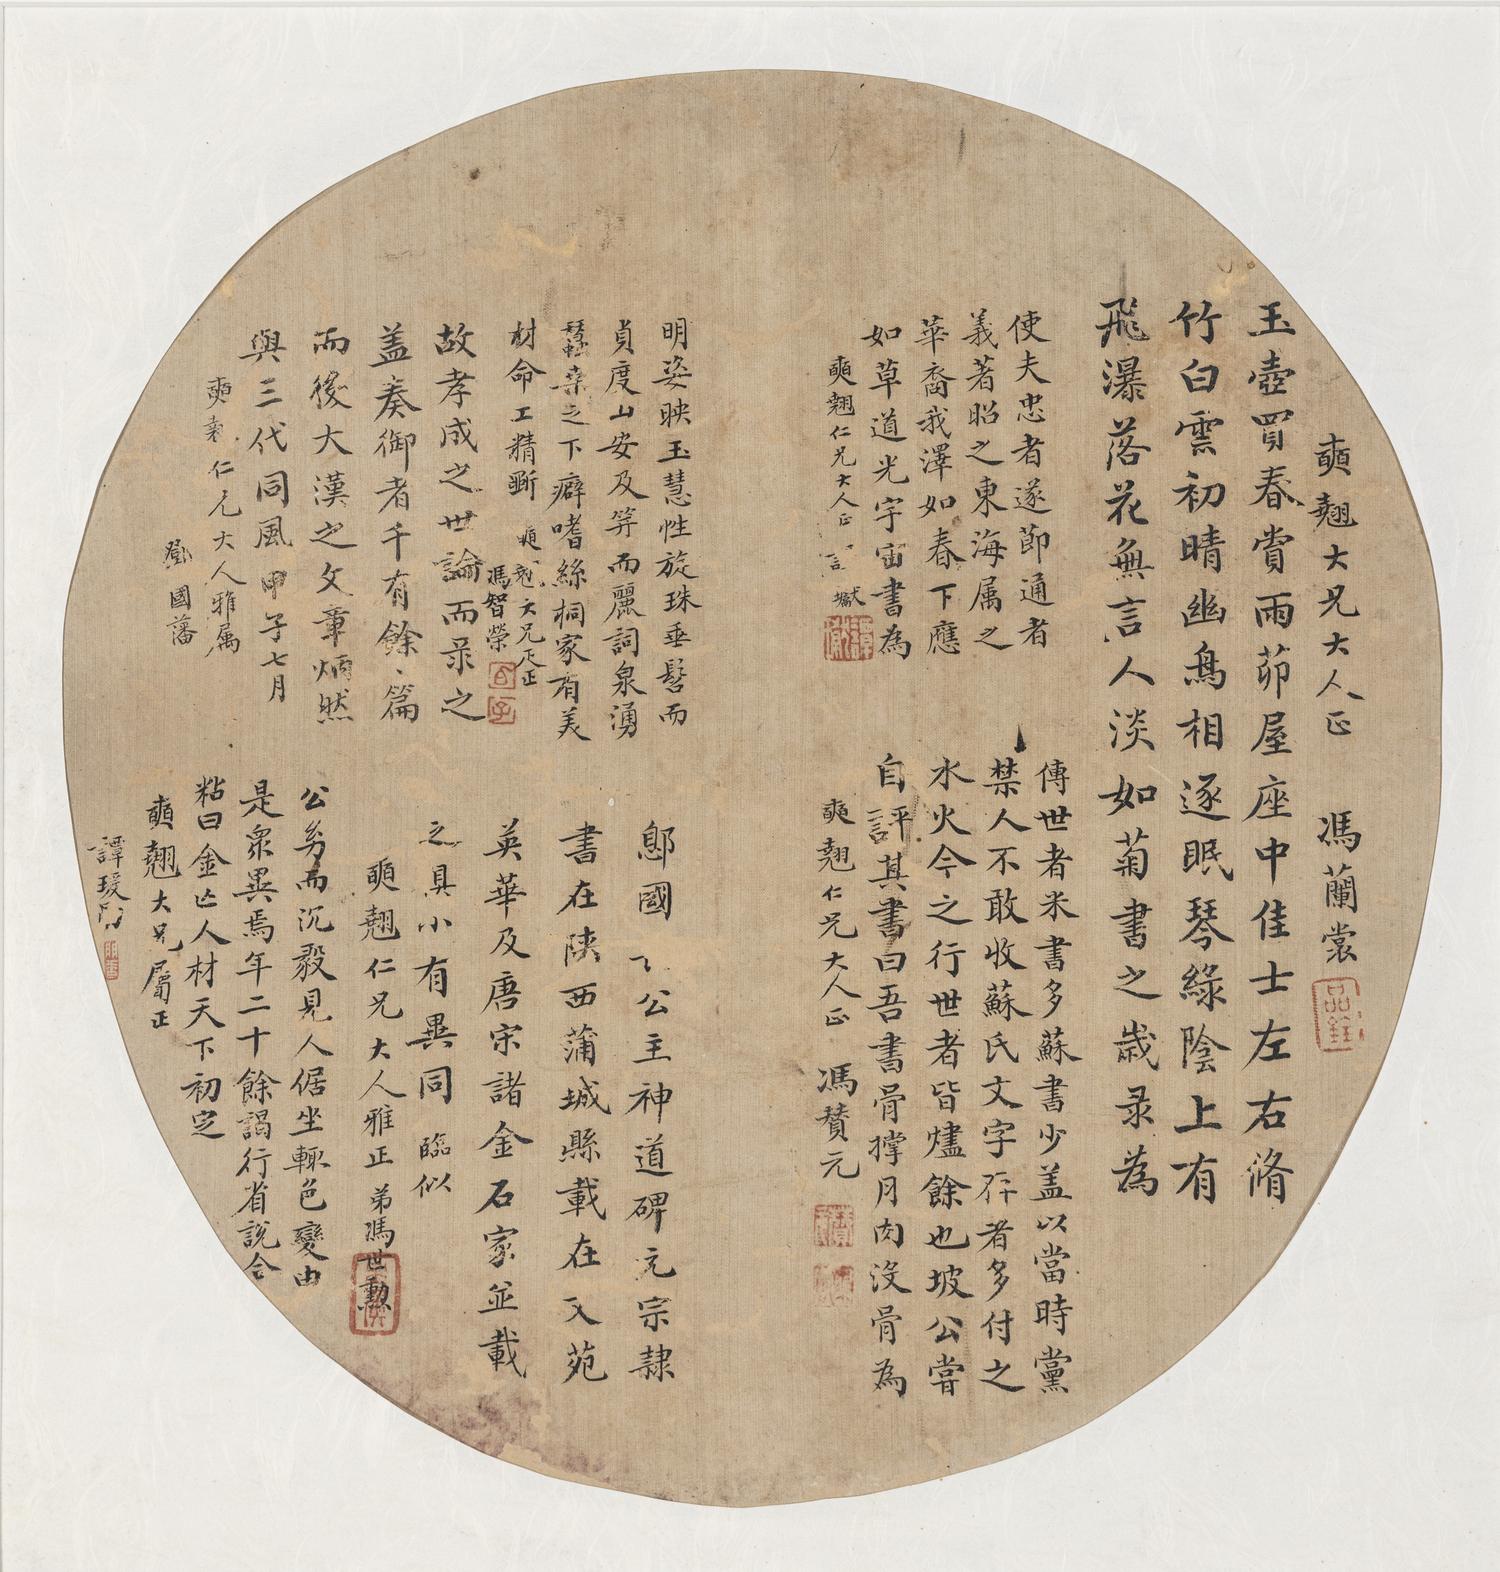 玉壺買春賞雨茆屋座中佳士左右脩
竹白雲初晴幽鳥相逐眠琴綠陰上有
飛瀑落花無言人淡如菊書之歲录為
奭翹大兄大人正 馮蘭裳
使夫忠者遂節通者
義著昭之東海属之
華裔我澤如春下應
如草道光宇宙書為
奭翹仁兄大人正
傳世者米書多蘇書少盖以當時黨
禁人不敢收蘇氏文字存者多付之
水火今之行世者皆燼餘也坡公嘗
自評其書曰吾書骨撑月肉沒骨為
奭翹仁兄大人正 馮贊元
明姿映玉慧性旋珠垂髫而
貞度山安及笄而麗詞泉湧
蠶桒之下癖嗜絲桐家有美
材命工精斲 奭翹大兄大人正
馮智榮
故孝成之世論而录之
盖奏御者千有餘、篇
而後大漢之文章炳然
與三代同風甲子七月
奭翹仁兄大人雅属
國藩
鄎國 公主神道碑元宗隷
書在陝西蒲城縣載在文苑
英華及唐宋諸金石家並載
之具小有異同 臨似
奭翹仁兄大人雅正 弟馮世勲
公㓜而沉毅見人倨坐輙色變由
是衆異焉年二十餘謁行省說合
粘曰金亡人材天下初定
奭翹大兄屬正
譚瑗